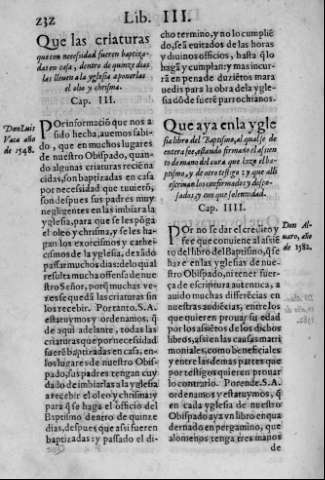 232
Lib. III.
Que las criaturas
que con necesidad fueren baptiza-
das en casa, dentro de quinze dias
las lleuen ala yglesia aponerlas
el olio y chrisma.
Cap. III.
Don Luis
Vaca año
de 1548.
Por informació que nos a
sido hecha, auemos sabi-
do, que en muchos lugares
de nuestro Obispado, quando
algunas criaturas reciē na
cidas, son baptizadas en casa
por necesidad que tuuierō,
son despues sus padres muy
negligentes en las imbiar ala
yglesia, para que se les pōga
el oleo y chrisma, y se les ha-
gan los exorcismos y cathe-
cismos de la yglesia, dexādo
passar muchos dias: delo qual
resulta mucha offensa de nue
stro Señor, porq̄ muchas ve-
zes se quedā las criaturas sin
los recebir. Por tanto. S. A.
estatuymos y ordenamos, q̄
de aqui adelante, todas las
criaturas que por necessidad
fuerē baptizadas en casa, en-
los lugares de nuestro Obis-
pado, sus padres tengan cuy
dado de imbiarlas ala yglesia
a recebir el oleo y chrisma: y
para q̄ se haga el officio del
Baptismo dentro de quinze
dias, despues que assi fueren
baptizadas: y passado el di-
cho termino, y no lo cumpliē
do, seā euitados de las horas
y diuinos officios, hasta q̄ lo
hagā y cumplan: y mas incur
rā en pena de duziētos mara
uedis para la obra dela ygle
sia dō de fuerē parrochianos.
Que aya en la ygle
sia libro del Baptismo, al qual se de
entera fee, estando firmado el asien
to de mano del cura que hizo el bap-
tismo, y de otro testigo: y que alli
escriuan los confirmados y despo-
sados, y con que solennidad.
Cap. IIII.
Don Al-
uaro, año
de 1582.
Por no se dar el credito y
fee que conuiene al assiē
to del libro del Baptismo, q̄ se
haze en las yglesias de nue-
stro Obispado, ni tener fuer-
ça de escriptura autentica, a
auido muchas differēcias en
nuestras audiēcias, entre los
que quieren prouar su edad
por los asiētos de los dichos
libros, assi en las causas matri
moniales, como beneficiales
y entre las demas partes que
por testigos quieren prouar
lo contrario. Porende. S. A.
ordenamos y estatuymos, q̄
en cada yglesia de nuestro
Obispado aya vn libro enqua
dernado en pergamino, que
alomenos tenga tres manos
de